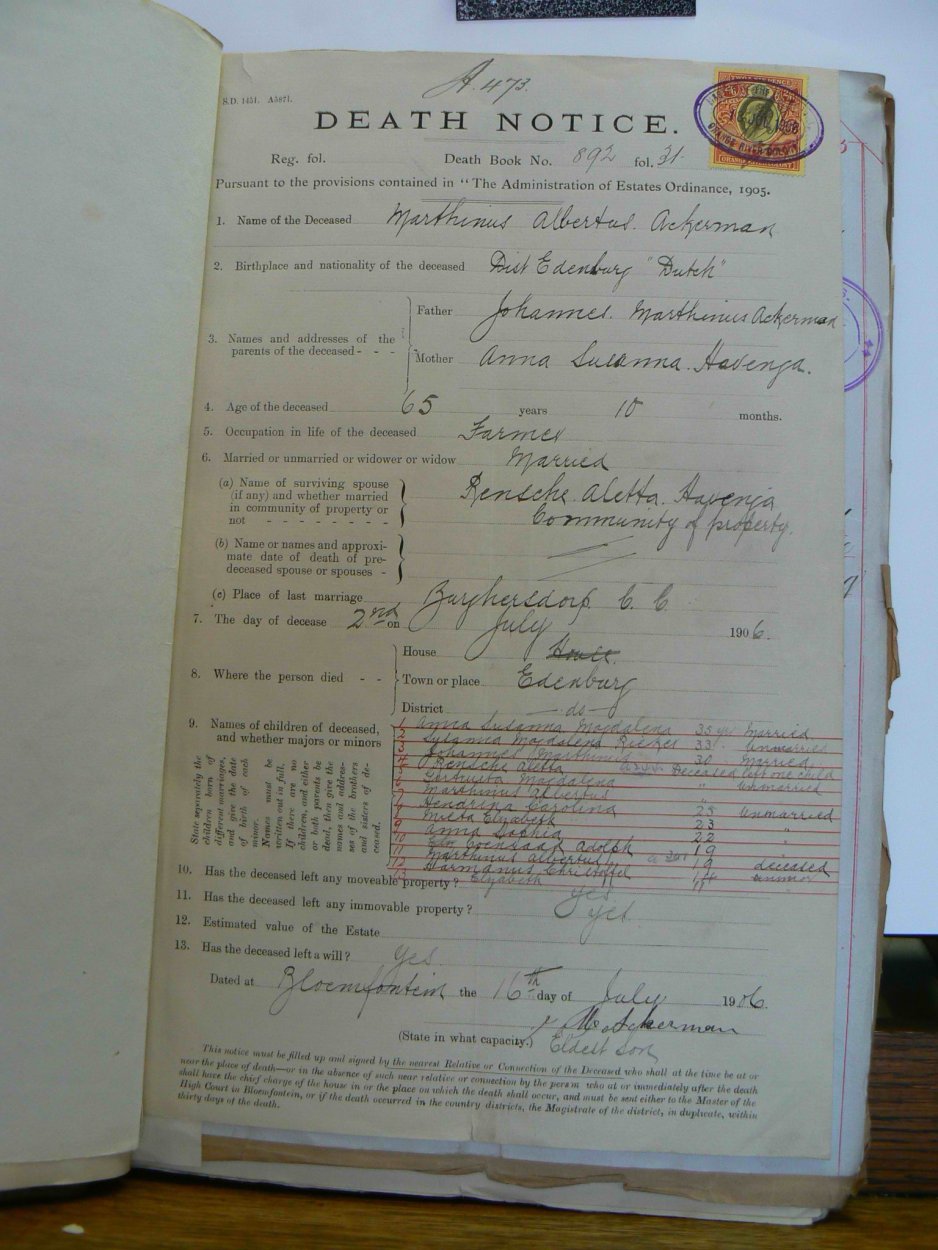 A. 473.
S.D. 1451. A5871.
DEATH NOTICE.
Reg. fol. Death Book No. 892 fol. 31.
Pursuant to the provisions contained in "The Administration of Estates Ordinance, 1905.
1. Name of the Deceased Marthinus Albertus. Ackerman
2. Birthplace and nationality of the deceased Dist Edenburg "Dutch"
Father Johannes. Marthinus Ackerman
3. Names and addresses of the parents of the deceased - - -
Mother Anna Susanna. Havenga.
4. Age of the deceased 65 years 10 months.
5. Occupation in life of the deceased Farmer
6. Married or unmarried or widower or widow Married
(a) Name of surviving spouse Rensche. Aletta. Havenga
(if any) and whether married
in community of property or Community of property.
not - - - - - - - -
(b) Name or names and approxi-
mate date of death of pre-
deceased spouse or spouses -
(c) Place of last marriage Burghersdorp C. C.
7. The day of decease 2nd on July 1906.
House
8. Where the person died - - Town or place Edenburg
District - do -
9. Names of children of deceased,
and whether majors or minors
State separately the
children born of
different marriages,
and give the date
of birth of each
minor.
Names must be
written out in full.
If there are no
children, and either
or both parents be
dead, then give the
names and addres-
ses of the brothers
and sisters of de-
ceased.
1 Anna Susanna Magdalena 35 yrs Married
2 Susanna Magdalena 33 Unmarried
3 Johannes Marthinus 30 Married
4 Rensche Aletta Deceased left one child
5 Magdalena " Unmarried
6 Marthinus Albertus "
7 Hendrina Carolina 25 Unmarried
8 Elizabeth 23
9 Anna Sophia 22 "
10 Coenraad Adolph 19
11 Marthinus Albertus 19 deceased
12 Harmanus Christoffel
13 Elizabeth
10. Has the deceased left any moveable property? yes
11. Has the deceased left any immovable property? yes.
12. Estimated value of the Estate
13. Has the deceased left a will? Yes.
Dated at Bloemfontein the 16th day of July 1906.
Ackerman
(State in what capacity.) Eldest Son
This notice must be filled up and signed by the nearest Relative or Connection of the Deceased who shall at the time be at or
near the place of death—or in the absence of such near relative or connection by the person who at or immediately after the death
shall have the chief charge of the house in or the place on which the death shall occur, and must be sent either to the Master of the
High Court in Bloemfontein, or if the death occurred in the country districts, the Magistrate of the district, in duplicate, within
thirty days of the death.